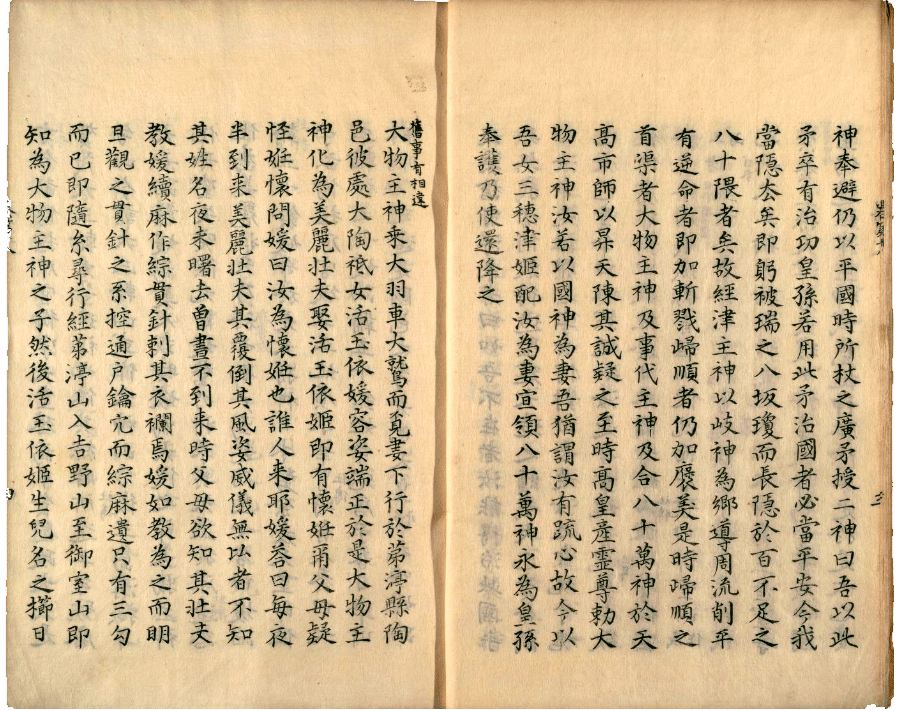 神奉避仍以平國時所杖之廣矛授二神曰吾以此
矛卒有治功皇孫若用此矛治國者必當平安今我
當隠去矣即躬被瑞之八坂瓊而長隠於百不足之
八十隈者矣故經津主神以岐神為郷導周流削平
有逆命者即加斬戮歸順者仍加褒美是時歸順之
首渠者大物主神及事代主神及合八十萬神於天
髙市師以昇天陳其誠疑之至時髙皇産靈尊勅大
物主神汝若以國神為妻吾猶謂汝有疏心故今以
吾女三穂津姫配汝為妻宣領八十萬神永為皇孫
奉護乃使還降之
舊事有相違
大物主神乗大羽車大鷲而覓妻下行於茅渟縣陶
邑彼處大陶祗女活玉依媛容姿端正於是大物主
神化為美麗壮夫娶活玉依姫即有懐姙甭父母疑
恠姙懐問媛曰汝為懐姙也誰人来耶媛荅曰毎夜
半到来美麗壮夫其覆倒其風姿威儀無以者不知
其姓名夜未曙去曽晝不到来時父母欲知其壮夫
教媛續麻作綜貫針刺其衣襴焉媛如教為之而明
旦觀之貫針之糸控通戸鑰穴而綜麻遺只有三勾
而已即隨糸尋行經茅渟山入吉野山至御室山即
知為大物主神之子然後活玉依姫生兒名之擳日